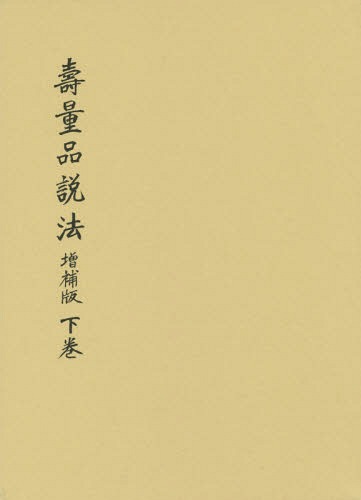 壽量品説法 增補版 下巻